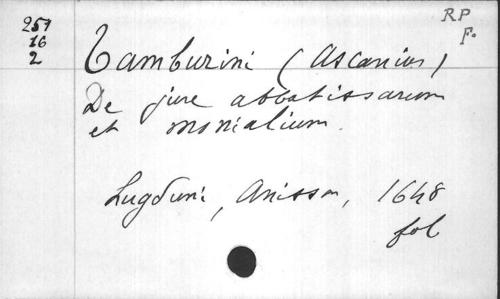 RP
F.
251
16
2
Tamburini (Ascanius)
De jure abbatissarum
et monialium.
Lugduni, Anisson, 1648
fol